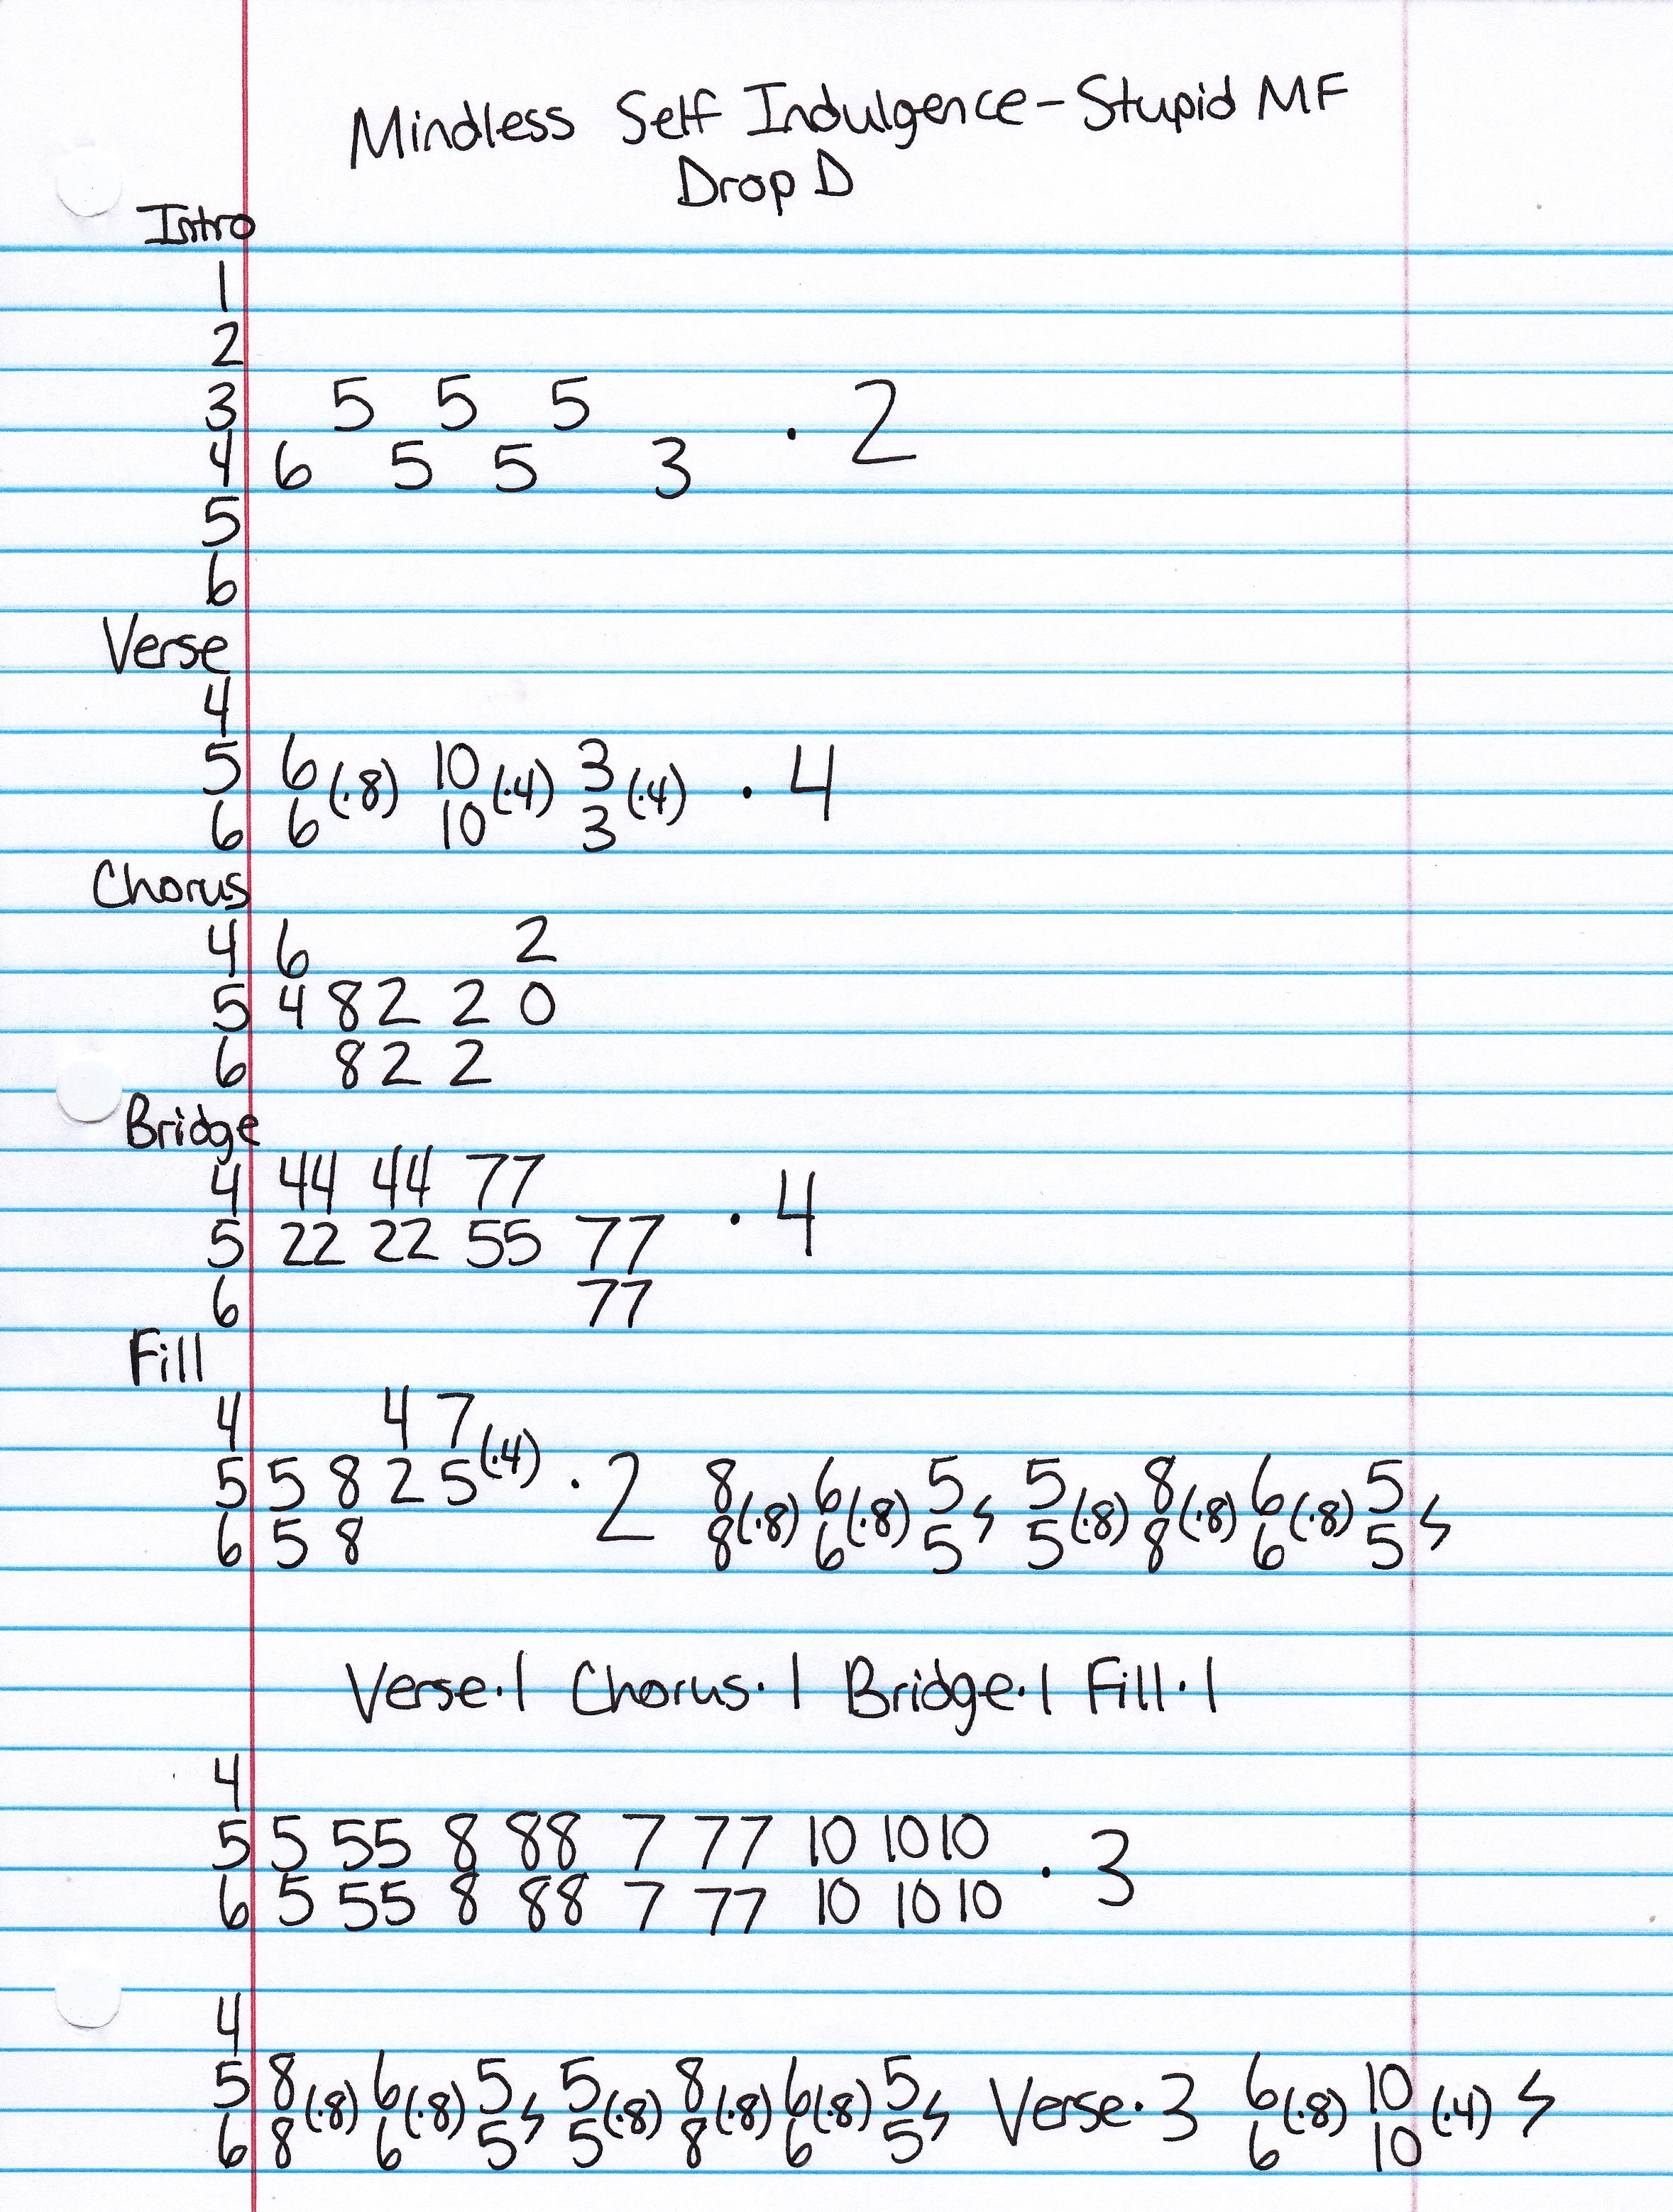 Mindless Self Indulgence - Stupid MF
Drop D
Intro
1
2
3 5 5 5 · 2
4 6 5 5 3
5
6
Verse
4
5 6 (·8) 10 (·4) 3 (·4) · 4
6 6 10 3
Chorus
4 6 2
5 4 8 2 2 0
6 8 2 2
Bridge
4 44 44 77 · 4
5 22 22 55 77
6 77
Fill
4 4 7 (·4)
5 5 8 2 5 · 2 8 (·8) 6 (·8) 5 5 (·8) 8 (·8) 6 (·8) 5
6 5 8 8 6 5 5 8 6 5
Verse·1 Chorus·1 Bridge·1 Fill·1
4
5 5 55 8 88 7 77 10 10 10 · 3
6 5 55 8 88 7 77 10 10 10
4
5 8 (·8) 6 (·8) 5 5 (·8) 8 (·8) 6 (·8) 5 Verse·3 6 (·8) 10 (·4)
6 8 6 5 5 8 6 5 6 10